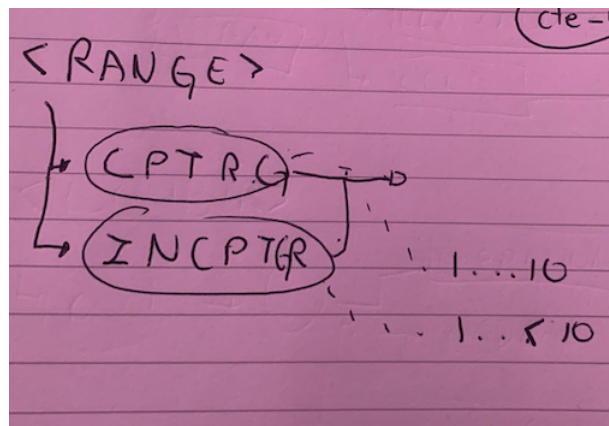 cte-
< RANGE >
CPTRG
INCPTGR
1...10
1..< 10